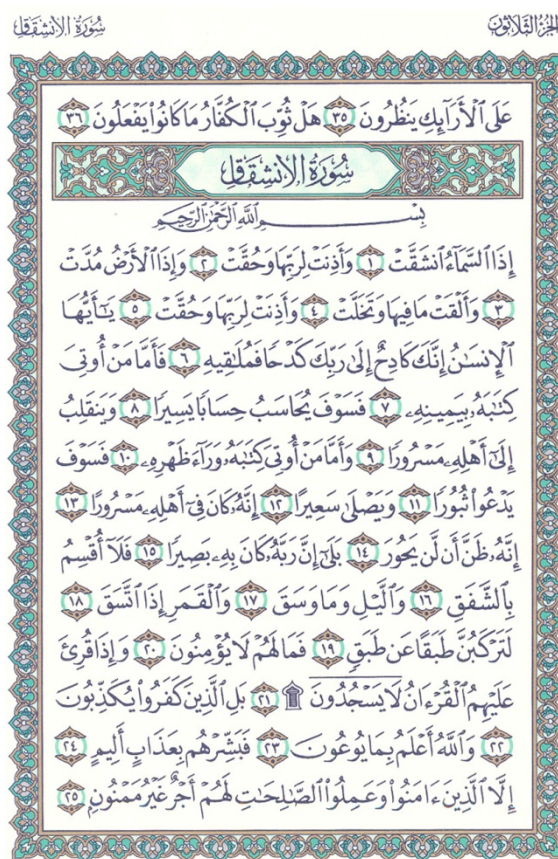 الجزء الثلاثون
سُورَةُ الانشِقَاقِ
عَلَى ٱلْأَرَآئِكِ يَنظُرُونَ ٣٥ هَلْ ثُوِّبَ ٱلْكُفَّارُ مَا كَانُوا۟ يَفْعَلُونَ ٣٦
سُورَةُ الانشِقَاقِ
بِسْمِ ٱللَّهِ ٱلرَّحْمَٰنِ ٱلرَّحِيمِ
إِذَا ٱلسَّمَآءُ ٱنشَقَّتْ ١ وَأَذِنَتْ لِرَبِّهَا وَحُقَّتْ ٢ وَإِذَا ٱلْأَرْضُ مُدَّتْ
٣ وَأَلْقَتْ مَا فِيهَا وَتَخَلَّتْ ٤ وَأَذِنَتْ لِرَبِّهَا وَحُقَّتْ ٥ يَٰٓأَيُّهَا
ٱلْإِنسَٰنُ إِنَّكَ كَادِحٌ إِلَىٰ رَبِّكَ كَدْحًا فَمُلَٰقِيهِ ٦ فَأَمَّا مَنْ أُوتِىَ
كِتَٰبَهُۥ بِيَمِينِهِۦ ٧ فَسَوْفَ يُحَاسَبُ حِسَابًا يَسِيرًا ٨ وَيَنقَلِبُ
إِلَىٰٓ أَهْلِهِۦ مَسْرُورًا ٩ وَأَمَّا مَنْ أُوتِىَ كِتَٰبَهُۥ وَرَآءَ ظَهْرِهِۦ ١٠ فَسَوْفَ
يَدْعُوا۟ ثُبُورًا ١١ وَيَصْلَىٰ سَعِيرًا ١٢ إِنَّهُۥ كَانَ فِىٓ أَهْلِهِۦ مَسْرُورًا ١٣
إِنَّهُۥ ظَنَّ أَن لَّن يَحُورَ ١٤ بَلَىٰٓ إِنَّ رَبَّهُۥ كَانَ بِهِۦ بَصِيرًا ١٥ فَلَآ أُقْسِمُ
بِٱلشَّفَقِ ١٦ وَٱلَّيْلِ وَمَا وَسَقَ ١٧ وَٱلْقَمَرِ إِذَا ٱتَّسَقَ ١٨
لَتَرْكَبُنَّ طَبَقًا عَن طَبَقٍ ١٩ فَمَا لَهُمْ لَا يُؤْمِنُونَ ٢٠ وَإِذَا قُرِئَ
عَلَيْهِمُ ٱلْقُرْءَانُ لَا يَسْجُدُونَ ۩ ٢١ بَلِ ٱلَّذِينَ كَفَرُوا۟ يُكَذِّبُونَ
٢٢ وَٱللَّهُ أَعْلَمُ بِمَا يُوعُونَ ٢٣ فَبَشِّرْهُم بِعَذَابٍ أَلِيمٍ ٢٤
إِلَّا ٱلَّذِينَ ءَامَنُوا۟ وَعَمِلُوا۟ ٱلصَّٰلِحَٰتِ لَهُمْ أَجْرٌ غَيْرُ مَمْنُونٍۭ ٢٥